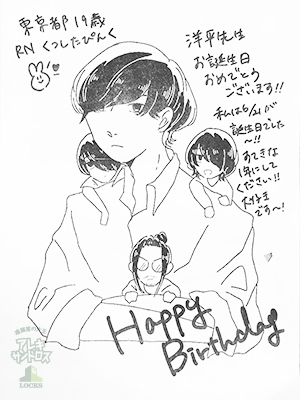 東京都 19歳
RN くつしたぴんく
洋平先生
お誕生日
おめでとう
ございます!!
私は6/21が
誕生日でした
〜!!
すてきな
1年にして
ください!!
大好き
です〜!
Happy
Birthday
アレキ
サンドロス
LOCKS